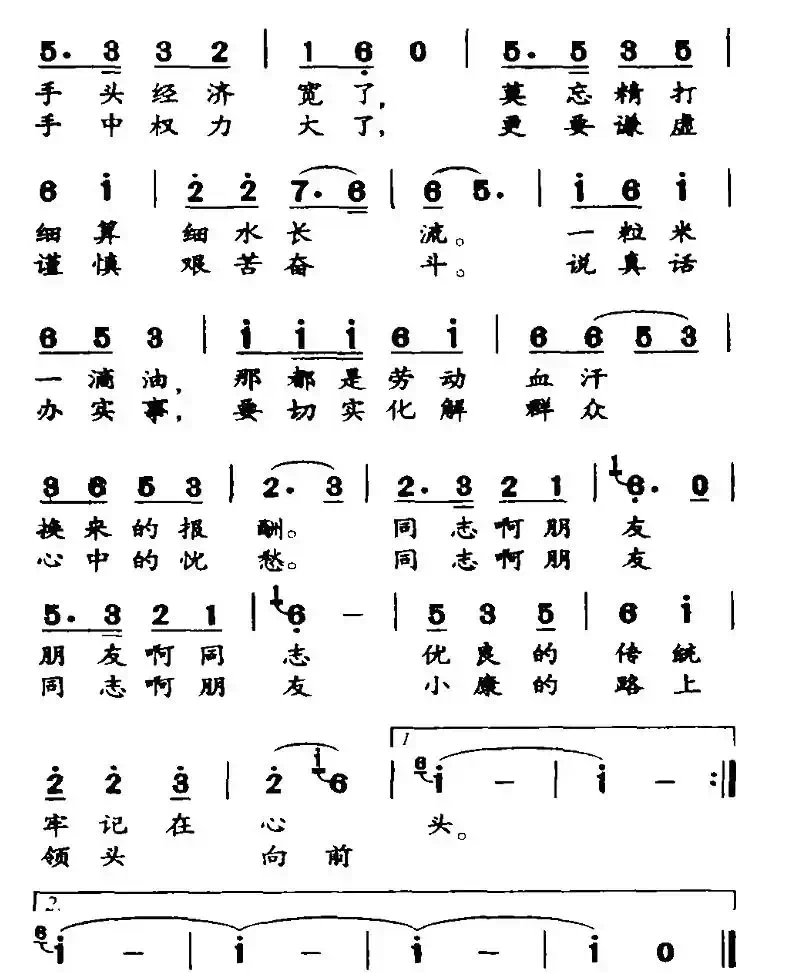 5. 3 3 2 | 1 6 0 | 5. 5 3 5 |
手头经济 宽了, 莫忘精打
手中权力 大了, 更要谦虚
6 1 | 2 2 7. 6 | 6 5. | 1 6 1 |
细算 细水长 流。 一粒米
谨慎 艰苦奋 斗。 说真话
6 5 3 | 1 1 1 6 1 | 6 6 5 3 |
一滴油, 那都是劳动 血汗
办实事, 要切实化解 群众
3 6 5 3 | 2. 3 | 2. 3 2 1 | 1 6. 0 |
换来的报 酬。 同志啊朋 友
心中的忧 愁。 同志啊朋 友
5. 3 2 1 | 1 6 – | 5 3 5 | 6 1 |
朋友啊同 志 优良的 传统
同志啊朋 友 小康的 路上
1.
2 2 3 | 2 1 6 | 6 1 – | 1 – :||
牢记在 心 头。
领头 向前
2.
6 1 – | 1 – | 1 – | 1 0 ||